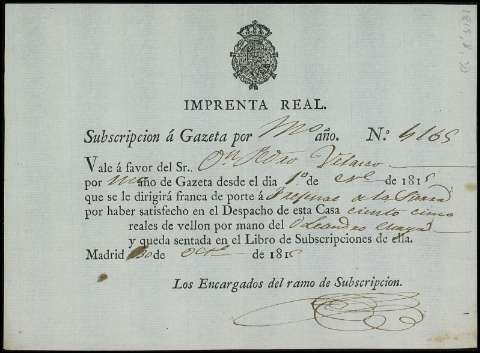 IMPRENTA REAL.
Subscripcion á Gazeta por Mº año. N.º 4165
Vale á favor del Sr. Dn Pedro Velasco
por año de Gazeta desde el dia 1º de de 181
que se le dirigirá franca de porte á de la
por haber satisfecho en el Despacho de esta Casa ciento cinco
reales de vellon por mano del
y queda sentada en el Libro de Subscripciones de ella.
Madrid 30 de de 181
Los Encargados del ramo de Subscripcion.